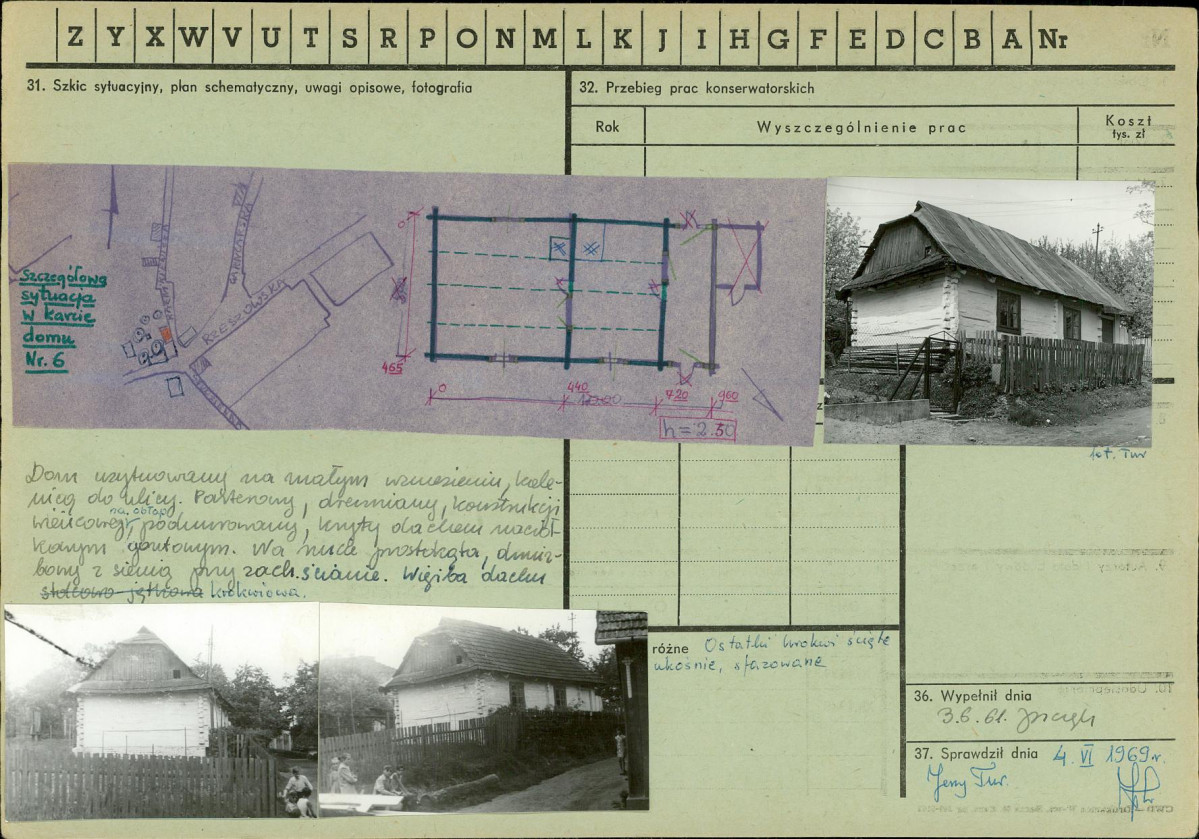 Z Y X W V U T S R P O N M L K J I H G F E D C B A Nr
31. Szkic sytuacyjny, plan schematyczny, uwagi opisowe, fotografia
32. Przebieg prac konserwatorskich
Rok
Wyszczególnienie prac
Koszt
tys. zł
Szczegółowa
sytuacja
w karcie
domu
Nr. 6
RZESZOWSKA
0
465
0
440
720
960
h = 2.50
fot. Tur
Dom usytuowany na małym wzniesieniu, kale-
nicą do ulicy. Parterowy, drewniany, konstrukcji
wieńcowej, na obłap podmurowany, kryty dachem naczół-
kowym gontowym. Na rzucie prostokąta, dwuiz-
bowy z sienią przy zach. ścianie. Więźba dachu
stolcowo jętkowa krokwiowa.
różne Ostatki krokwi ścięte
ukośnie, sfazowane
36. Wypełnił dnia
3.6.61.
37. Sprawdził dnia 4. VI 1969 r.
Jerzy Tur.